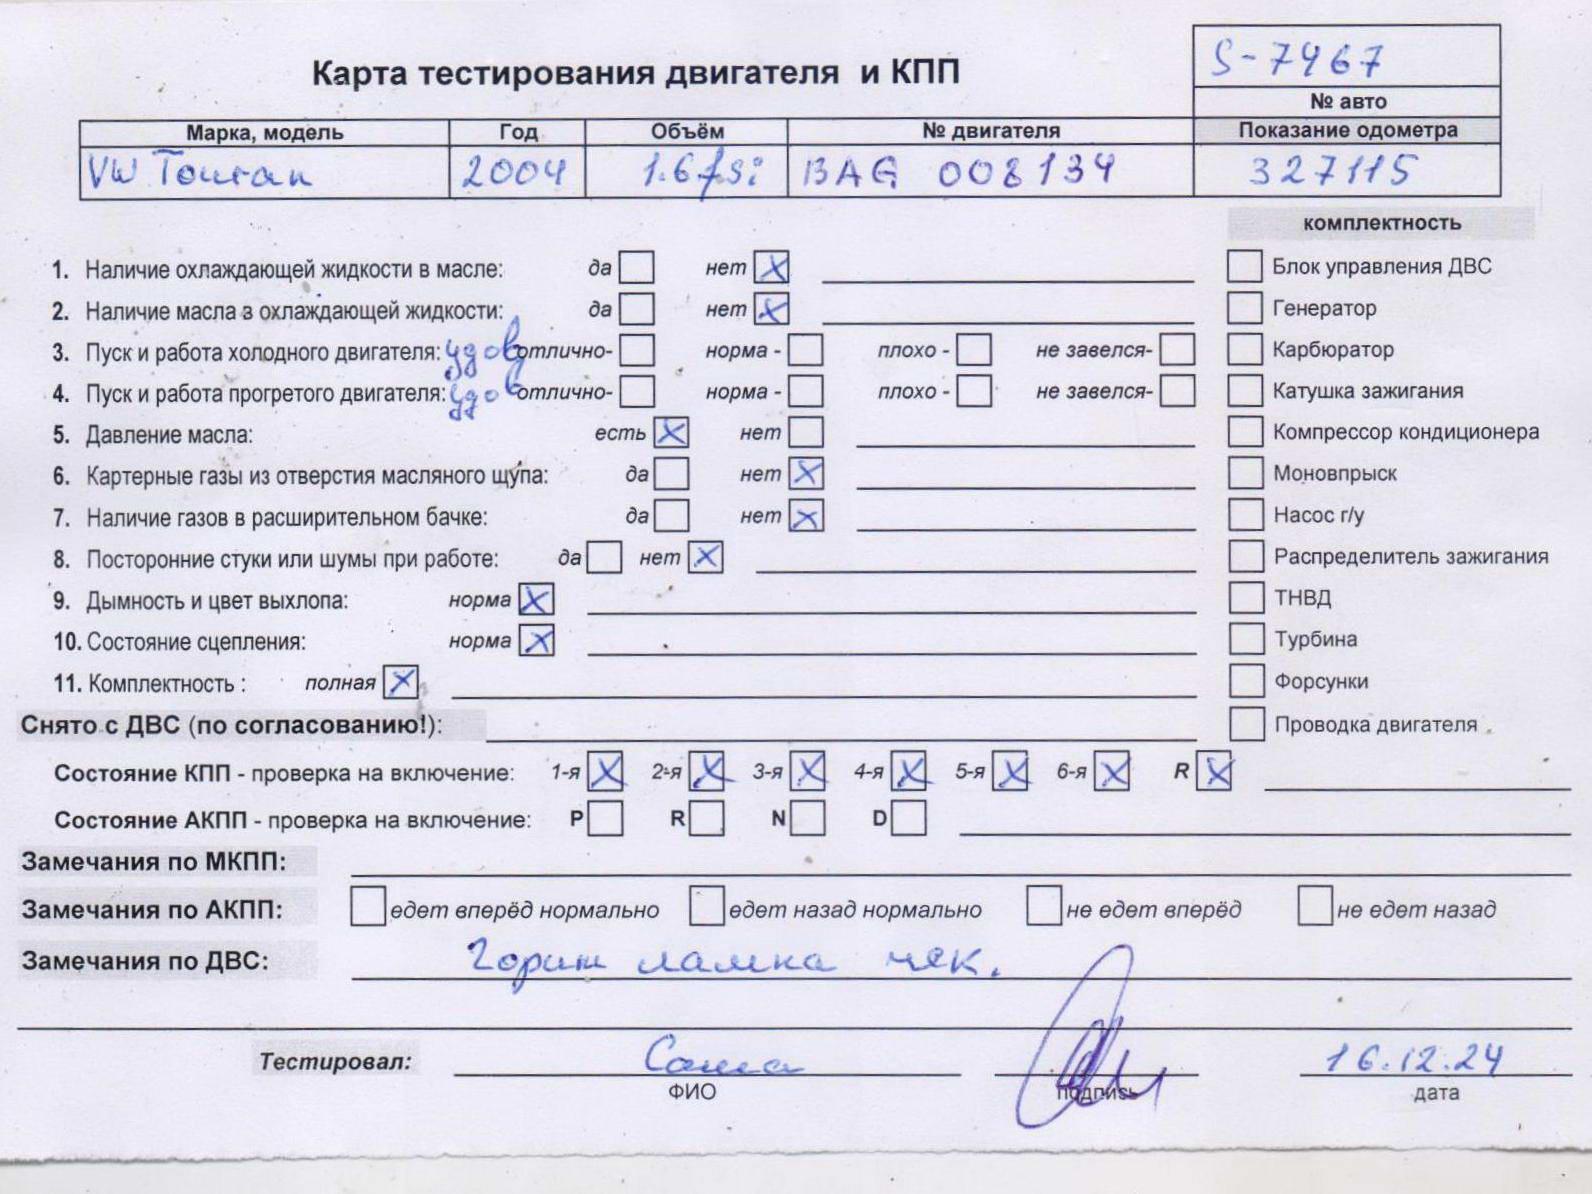 S-7467
Карта тестирования двигателя и КПП
№ авто
Марка, модель Год Объём № двигателя Показание одометра
VW Touran 2004 1.6 fsi BAG 008134 327115
комплектность
1. Наличие охлаждающей жидкости в масле: да нет X Блок управления ДВС
2. Наличие масла в охлаждающей жидкости: да нет X Генератор
3. Пуск и работа холодного двигателя: удов отлично- норма - плохо - не завелся- Карбюратор
4. Пуск и работа прогретого двигателя: удов отлично- норма - плохо - не завелся- Катушка зажигания
5. Давление масла: есть X нет Компрессор кондиционера
6. Картерные газы из отверстия масляного щупа: да нет X Моновпрыск
7. Наличие газов в расширительном бачке: да нет X Насос г/у
8. Посторонние стуки или шумы при работе: да нет X Распределитель зажигания
9. Дымность и цвет выхлопа: норма X ТНВД
10. Состояние сцепления: норма X Турбина
11. Комплектность : полная X Форсунки
Снято с ДВС (по согласованию!): Проводка двигателя
Состояние КПП - проверка на включение: 1-я X 2-я X 3-я X 4-я X 5-я X 6-я X R X
Состояние АКПП - проверка на включение: P R N D
Замечания по МКПП:
Замечания по АКПП: едет вперёд нормально едет назад нормально не едет вперёд не едет назад
Замечания по ДВС: Горит лампа чек.
Тестировал: Саша 16.12.24
ФИО подпись дата